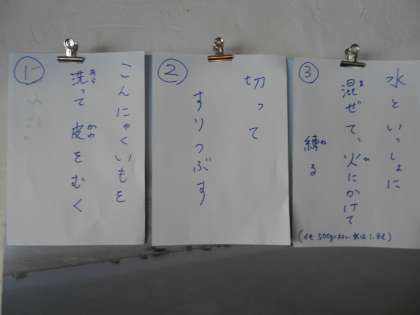 ①
こんにゃくいもを
洗って皮をむく
②
切って
すりつぶす
③
水といっしょに
混ぜて、火にかけて
練る